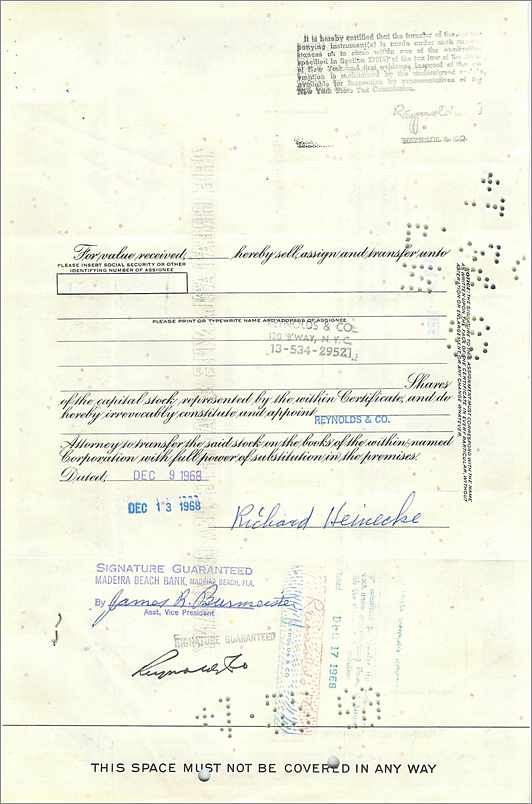 It is hereby certified that the transfer of the
panying instrument(s) is made under such
stances as to come within one of the
specified in Section 270(5) of the tax law of the
of New York and that evidence
is maintained by the undersigned
available for inspection by representatives of the
New York State Tax Commission.
Reynolds
REYNOLDS & CO.
For value received, hereby sell, assign and transfer unto
PLEASE INSERT SOCIAL SECURITY OR OTHER
IDENTIFYING NUMBER OF ASSIGNEE
PLEASE PRINT OR TYPEWRITE NAME AND ADDRESS OF ASSIGNEE
REYNOLDS & CO.
120 B'WAY, N.Y.C.
13-534-29521
Shares
of the capital stock represented by the within Certificate, and do
hereby irrevocably constitute and appoint
REYNOLDS & CO.
Attorney to transfer the said stock on the books of the within named
Corporation with full power of substitution in the premises.
Dated, DEC 9 1968
DEC 13 1968
Richard Heinecke
NOTICE: THE SIGNATURE TO THIS ASSIGNMENT MUST CORRESPOND WITH THE NAME
AS WRITTEN UPON THE FACE OF THE CERTIFICATE IN EVERY PARTICULAR, WITHOUT
ALTERATION OR ENLARGEMENT OR ANY CHANGE WHATEVER.
SIGNATURE GUARANTEED
MADEIRA BEACH BANK, MADEIRA BEACH, FLA.
By James R. Burmeister
Asst. Vice President
SIGNATURE GUARANTEED
Reynolds & Co
DEC 17 1968
THIS SPACE MUST NOT BE COVERED IN ANY WAY